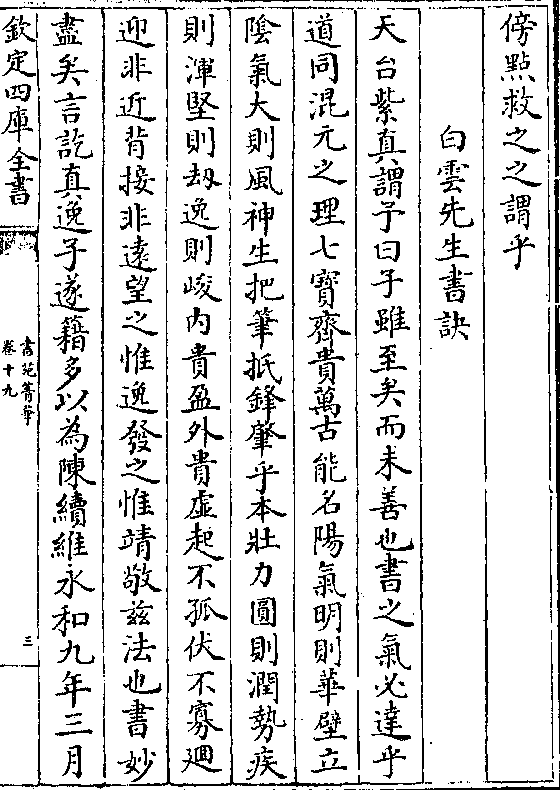 傍㸃救之之謂乎
白雲先生書訣
天台紫真謂予曰子雖至矣而未善也書之氣必達乎
道同混元之理七寶齊貴萬古能名陽氣明則華壁立
隂氣大則風神生把筆抵鋒肇乎本壯力圓則潤勢疾
則渾堅則刼逸則峻内貴盈外貴虛起不孤伏不寡廻
迎非近背接非逺望之惟逸發之惟靖敬兹法也書妙
盡矣言訖真逸子遂籍多以為陳續維永和九年三月
欽定四庫全書
書苑菁華
卷十九
三